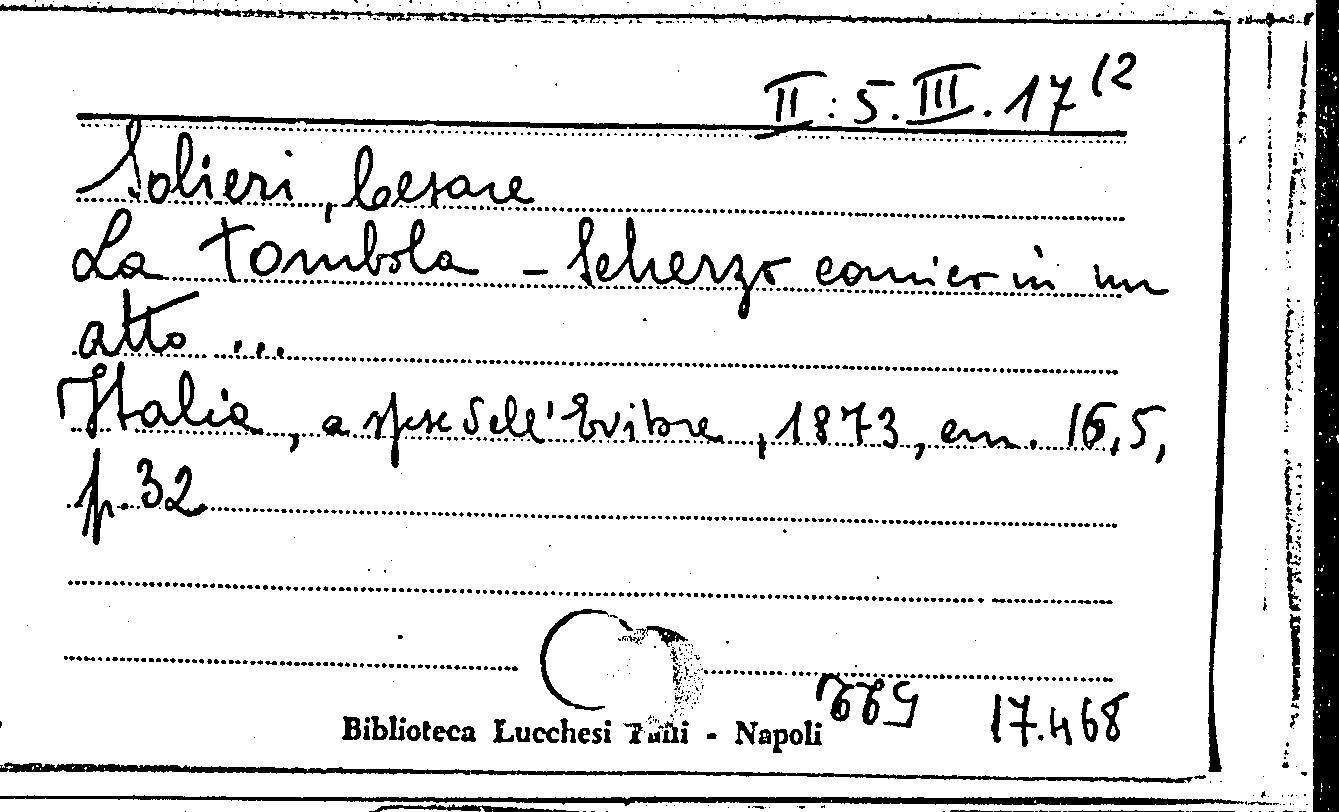 II : 5. III. 17 12
Solieri, Cesare
La tombola - Scherzo comico in un
atto ...
Italia, a spese dell'Editore, 1873, cm. 16,5,
p. 32
Biblioteca Lucchesi Palli - Napoli
17.468